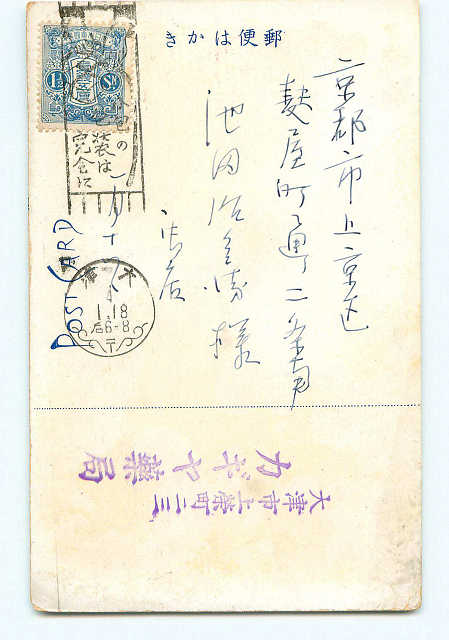 きかは便郵
京都市上京区
麩屋町通二条南
池田治
様
POST CARD
1½ Sn
の
袋は
完全に
大津
1.18
后6-8
〒
大津市上栄町二三
カギヤ薬局